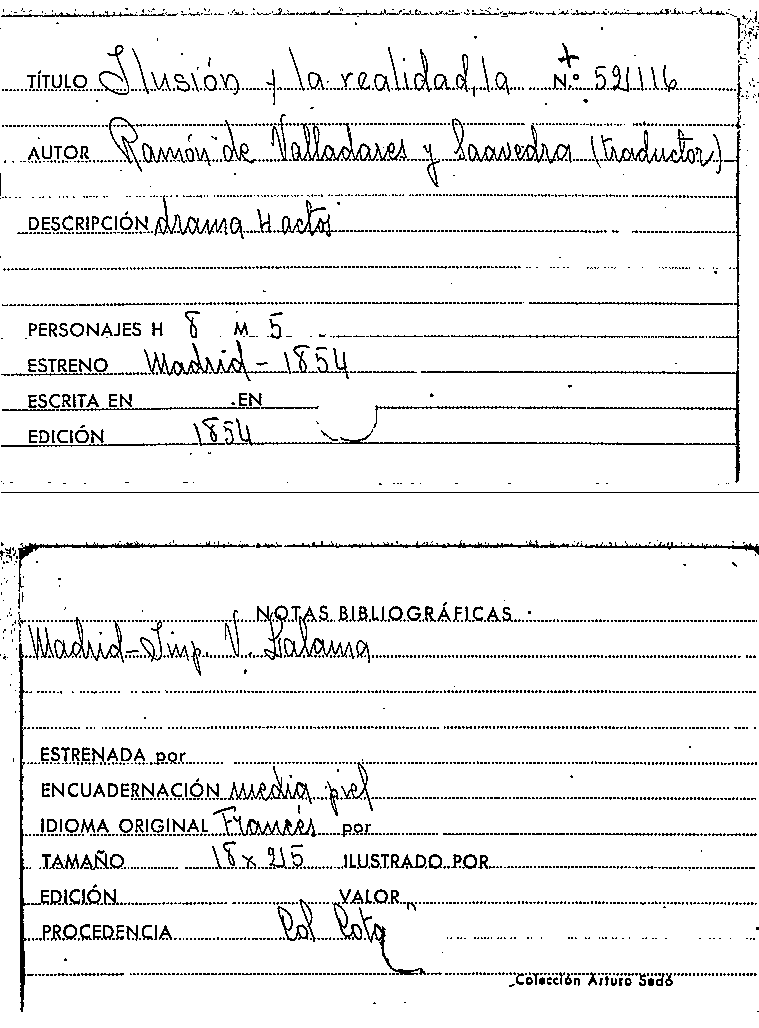 TÍTULO Ilusión y la realidad, la N.º 521116
AUTOR Ramón de Valladares y Saavedra (traductor)
DESCRIPCIÓN drama 4 actos
PERSONAJES H 8 M 5
ESTRENO Madrid - 1854
ESCRITA EN EN
EDICIÓN 1854
NOTAS BIBLIOGRÁFICAS
Madrid - Imp. V. Lalama
ESTRENADA por
ENCUADERNACIÓN media piel
IDIOMA ORIGINAL Francés por
TAMAÑO 18 x 215 ILUSTRADO POR
EDICIÓN VALOR
PROCEDENCIA Col Cota
Colección Arturo Sedó